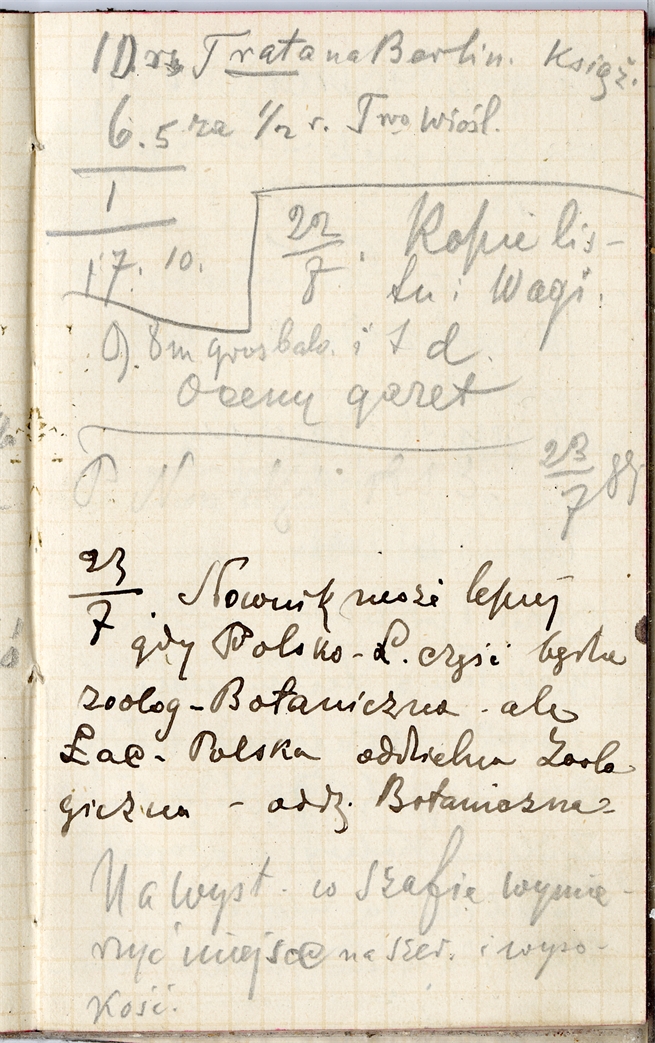 1 Drs Tratana Berlin. Księż.
6.5 za 1/2 r. Two Wiośl.
1
17. 10.
22/7. Kopie lis-
tu i Wagi.
9. 8m gros balo. i t d.
Oceny gazet
P. N
23/7
23/7. Słownik może lepiej
gdy Polsko-Ł. część będzie
zoolog-Botaniczna - ale
Łac- Polska oddzielna Zoolo
giczna - oddz. Botaniczna-
Na wyst. w szafie wymie-
rzyć miejsce na szer. i wyso-
kość.